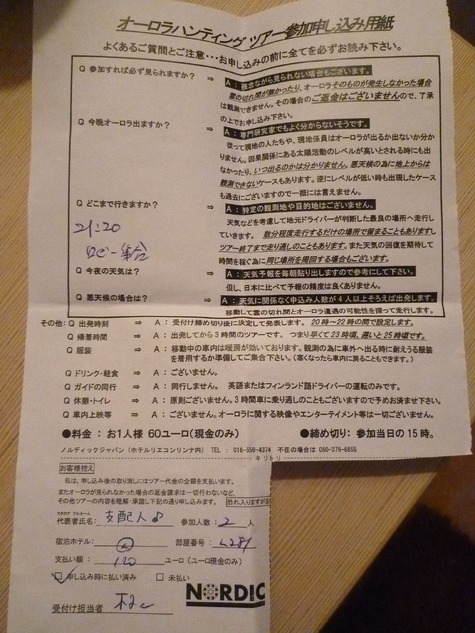 オーロラハンティングツアー参加申し込み用紙
よくあるご質問とご注意・・・お申し込みの前に全てを必ずお読み下さい。
Q 参加すれば必ず見られますか? ⇒ A:残念ながら見られない場合もございます。
雲の切れ間が無かったり、オーロラそのものが発生しなかった場合
は観測できません。その場合のご返金はございませんので、了承
の上でお申し込み下さい。
Q 今晩オーロラ出ますか? ⇒ A:専門研究家でもよく分からないそうです。
従って現地の人たちや、現地係員はオーロラが出るか出ないか分か
りません。因果関係にある太陽活動のレベルが高いとされる時にも出
なかったり、いつ出るのかは分かりません。悪天候の為に地上からは
観測できないケースもあります。逆にレベルが低い時も出現したケース
も過去にございますので一概には言えません。
Q どこまで行きますか? ⇒ A:特定の観測地や目的地はございません。
天気などを考慮して地元ドライバーが判断した最良の場所へ走行し
ていきます。数分程度走行するだけの場所で留まることもありますし
ツアー終了まで走り通しのこともあります。また天気の回復を期待して
時間を稼ぐ為に同じ場所を周回する場合もございます。
21:20
ロビー集合
Q 今夜の天気は? ⇒ A:天気予報を毎朝貼り出しますので参考にして下さい。
但し、日本に比べて予報の精度は良くありません。
Q 悪天候の場合は? ⇒ A:天気に関係なく申込み人数が4人以上そろえば出発します。
移動して雲の切れ間とオーロラ遭遇の可能性を探って走行します。
その他:Q 出発時刻 ⇒ A:受付け締め切り後に決定して発表します。20時~22時の間で設定します。
Q 帰着時間 ⇒ A:出発してから3時間のツアーです。つまり早くて23時頃、遅いと25時頃です。
Q 服装 ⇒ A:移動中の車内は暖房が効いております。観測の為に車外へ出る時に耐えうる服装
を着用するか準備してご集合下さい。(寒くなったら車内に戻ることもできます。)
Q ドリンク・軽食 ⇒ A:ございません。
Q ガイドの同行 ⇒ A:同行しません。英語またはフィンランド語ドライバーの運転のみです。
Q 休憩・トイレ ⇒ A:原則ございません。3時間車に乗り通しのこともございますので予めお済ませ下さい。
Q 車内上映等 ⇒ A:ございません。オーロラに関する映像やエンターテイメント等は一切ございません。
●料金:お1人様 60ユーロ(現金のみ) ●締め切り:参加当日の15時。
ノルディックジャパン(ホテルリエコンリンナ内) TEL:016-559-4374 不在の場合は 050-376-6855
キリトリ
お客様控え
私は、申し込み後の取り消しにはツアー代金の全額を支払います。
またオーロラが見られなかった場合の返金請求は一切行わないなど、
その他ツアーの内容を理解・承諾して下記の通り申し込みます。
カタカナ フルネーム
代表者氏名: 支配人♂ 参加人数: 2 人
宿泊ホテル: 部屋番号:
支払い額: 120 ユーロ(ユーロ現金のみ)
申し込み時に払い済み □ 未払い
NORDIC
受付け担当者